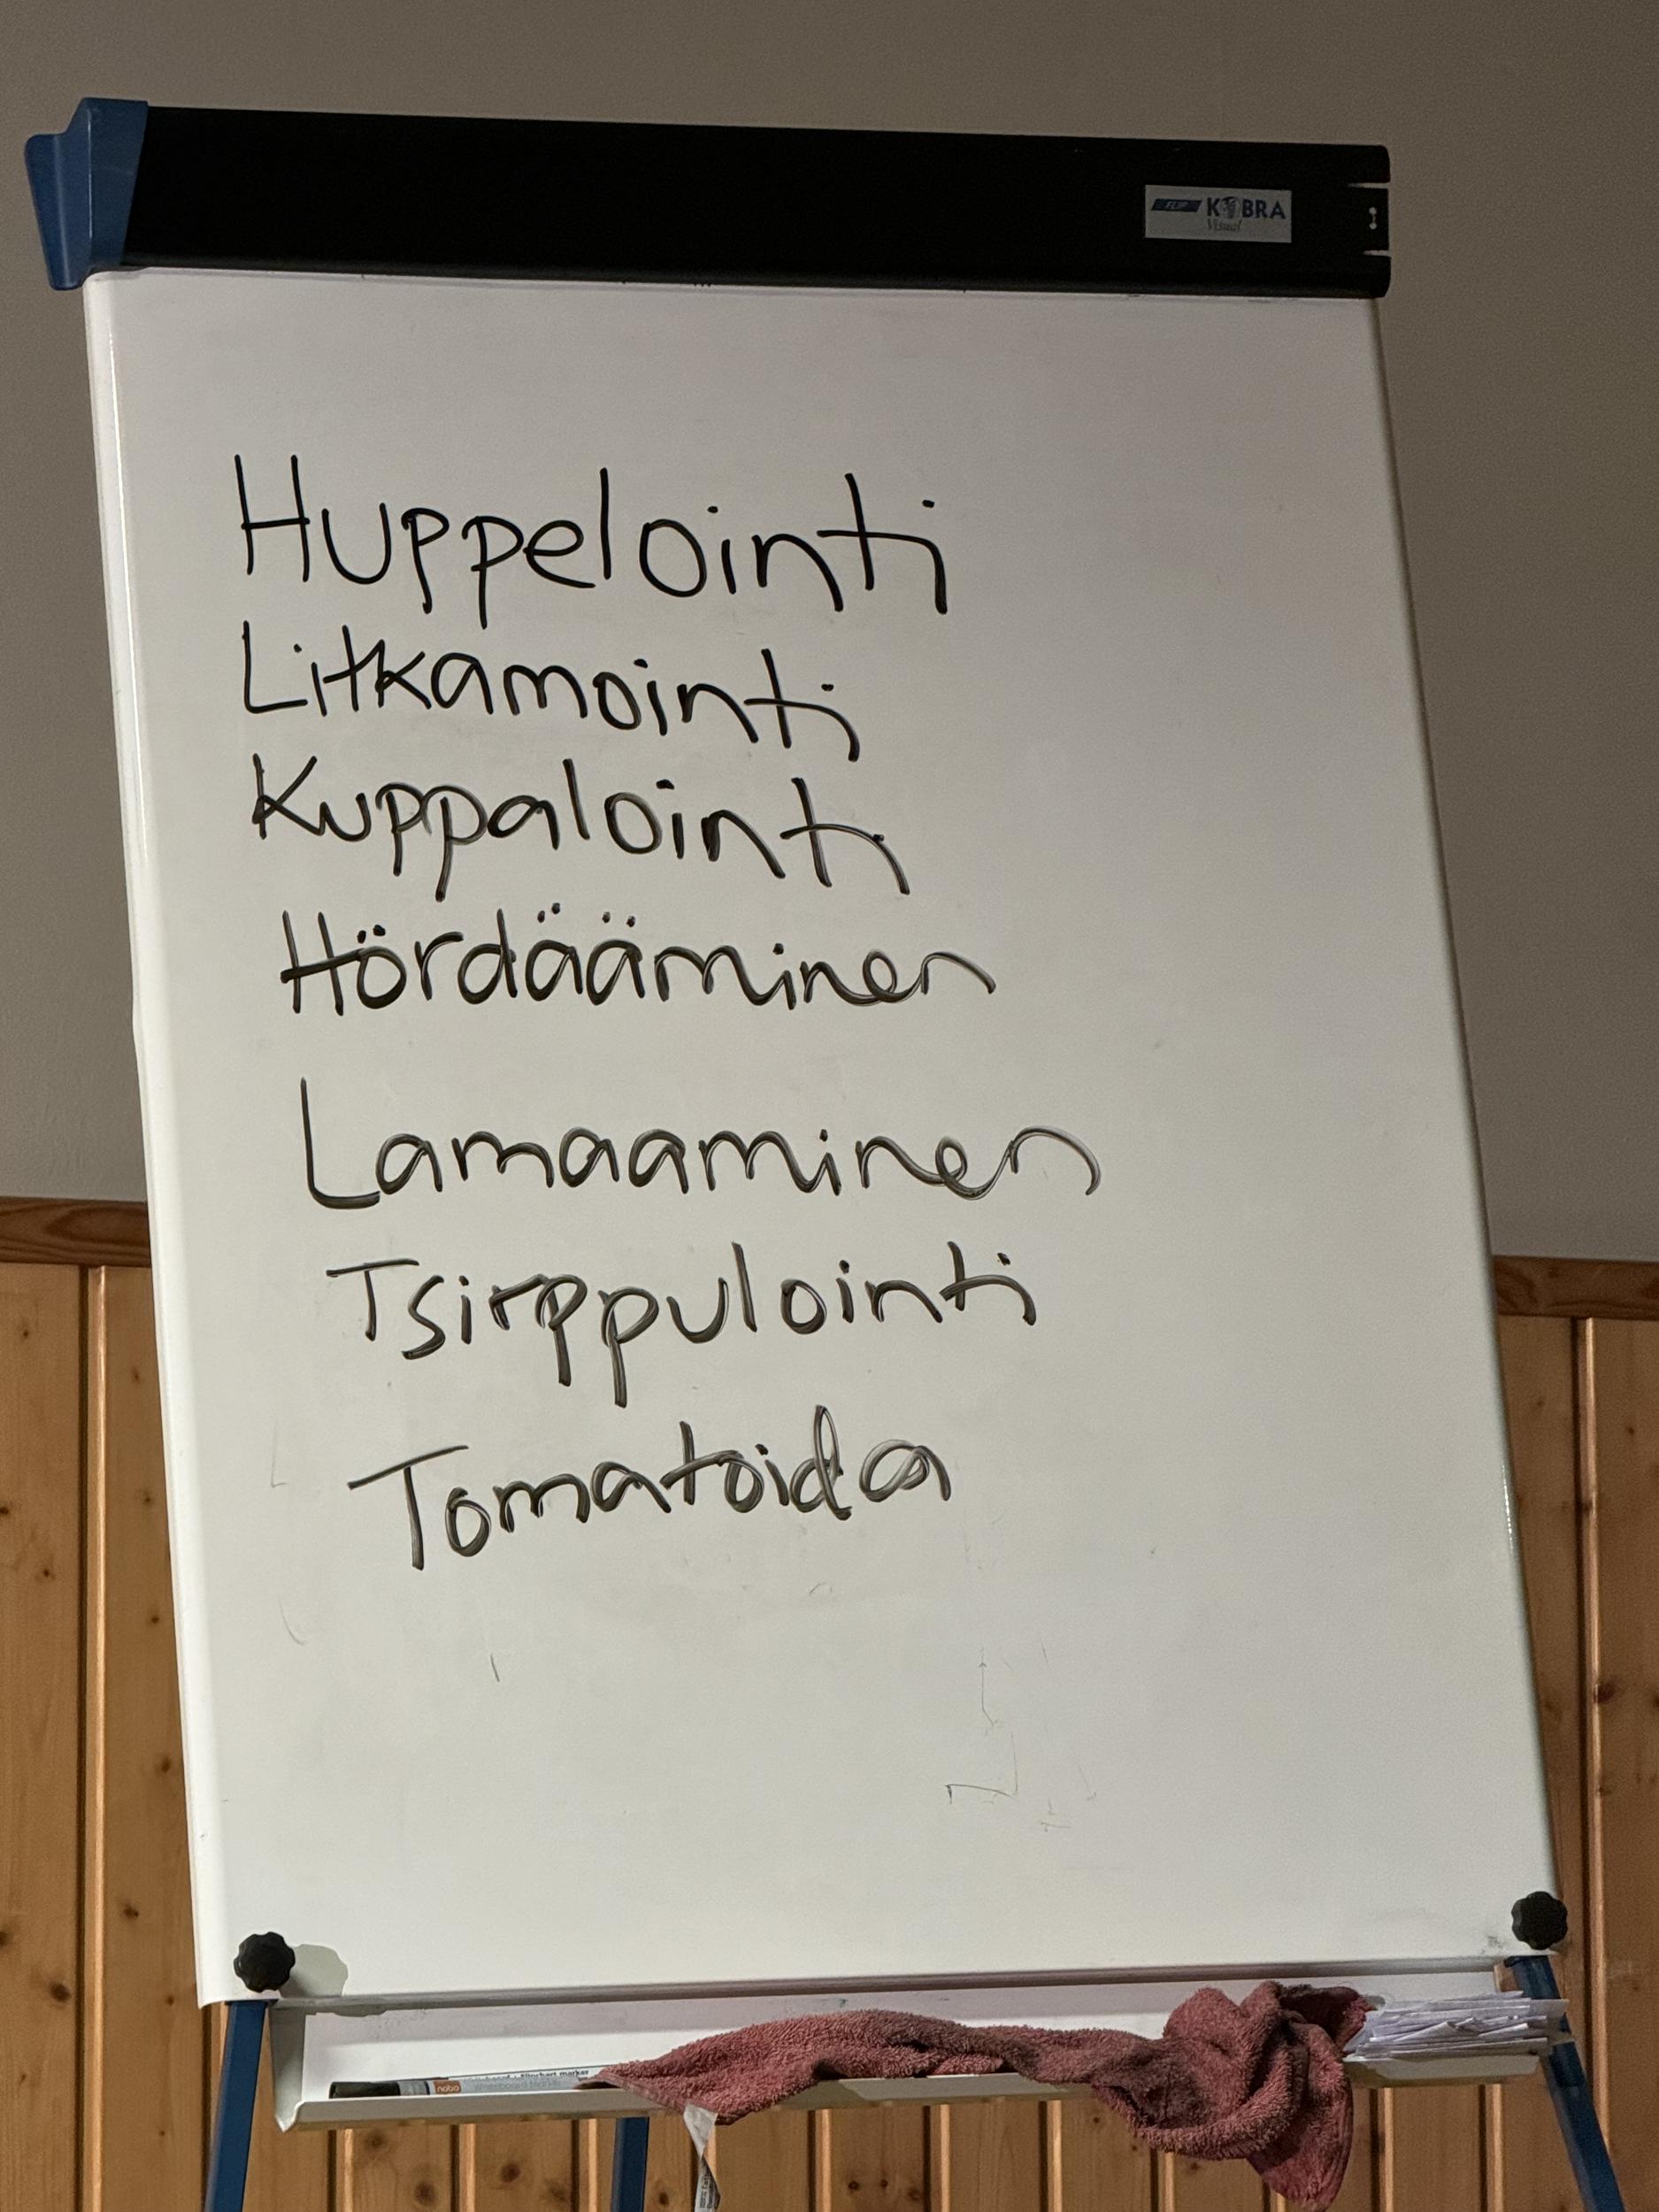 FLIP KOBRA
Visual
Huppelointi
Litkamointi
Kuppalointi
Hördääminen
Lamaaminen
Tsirppulointi
Tomatoida
nobo